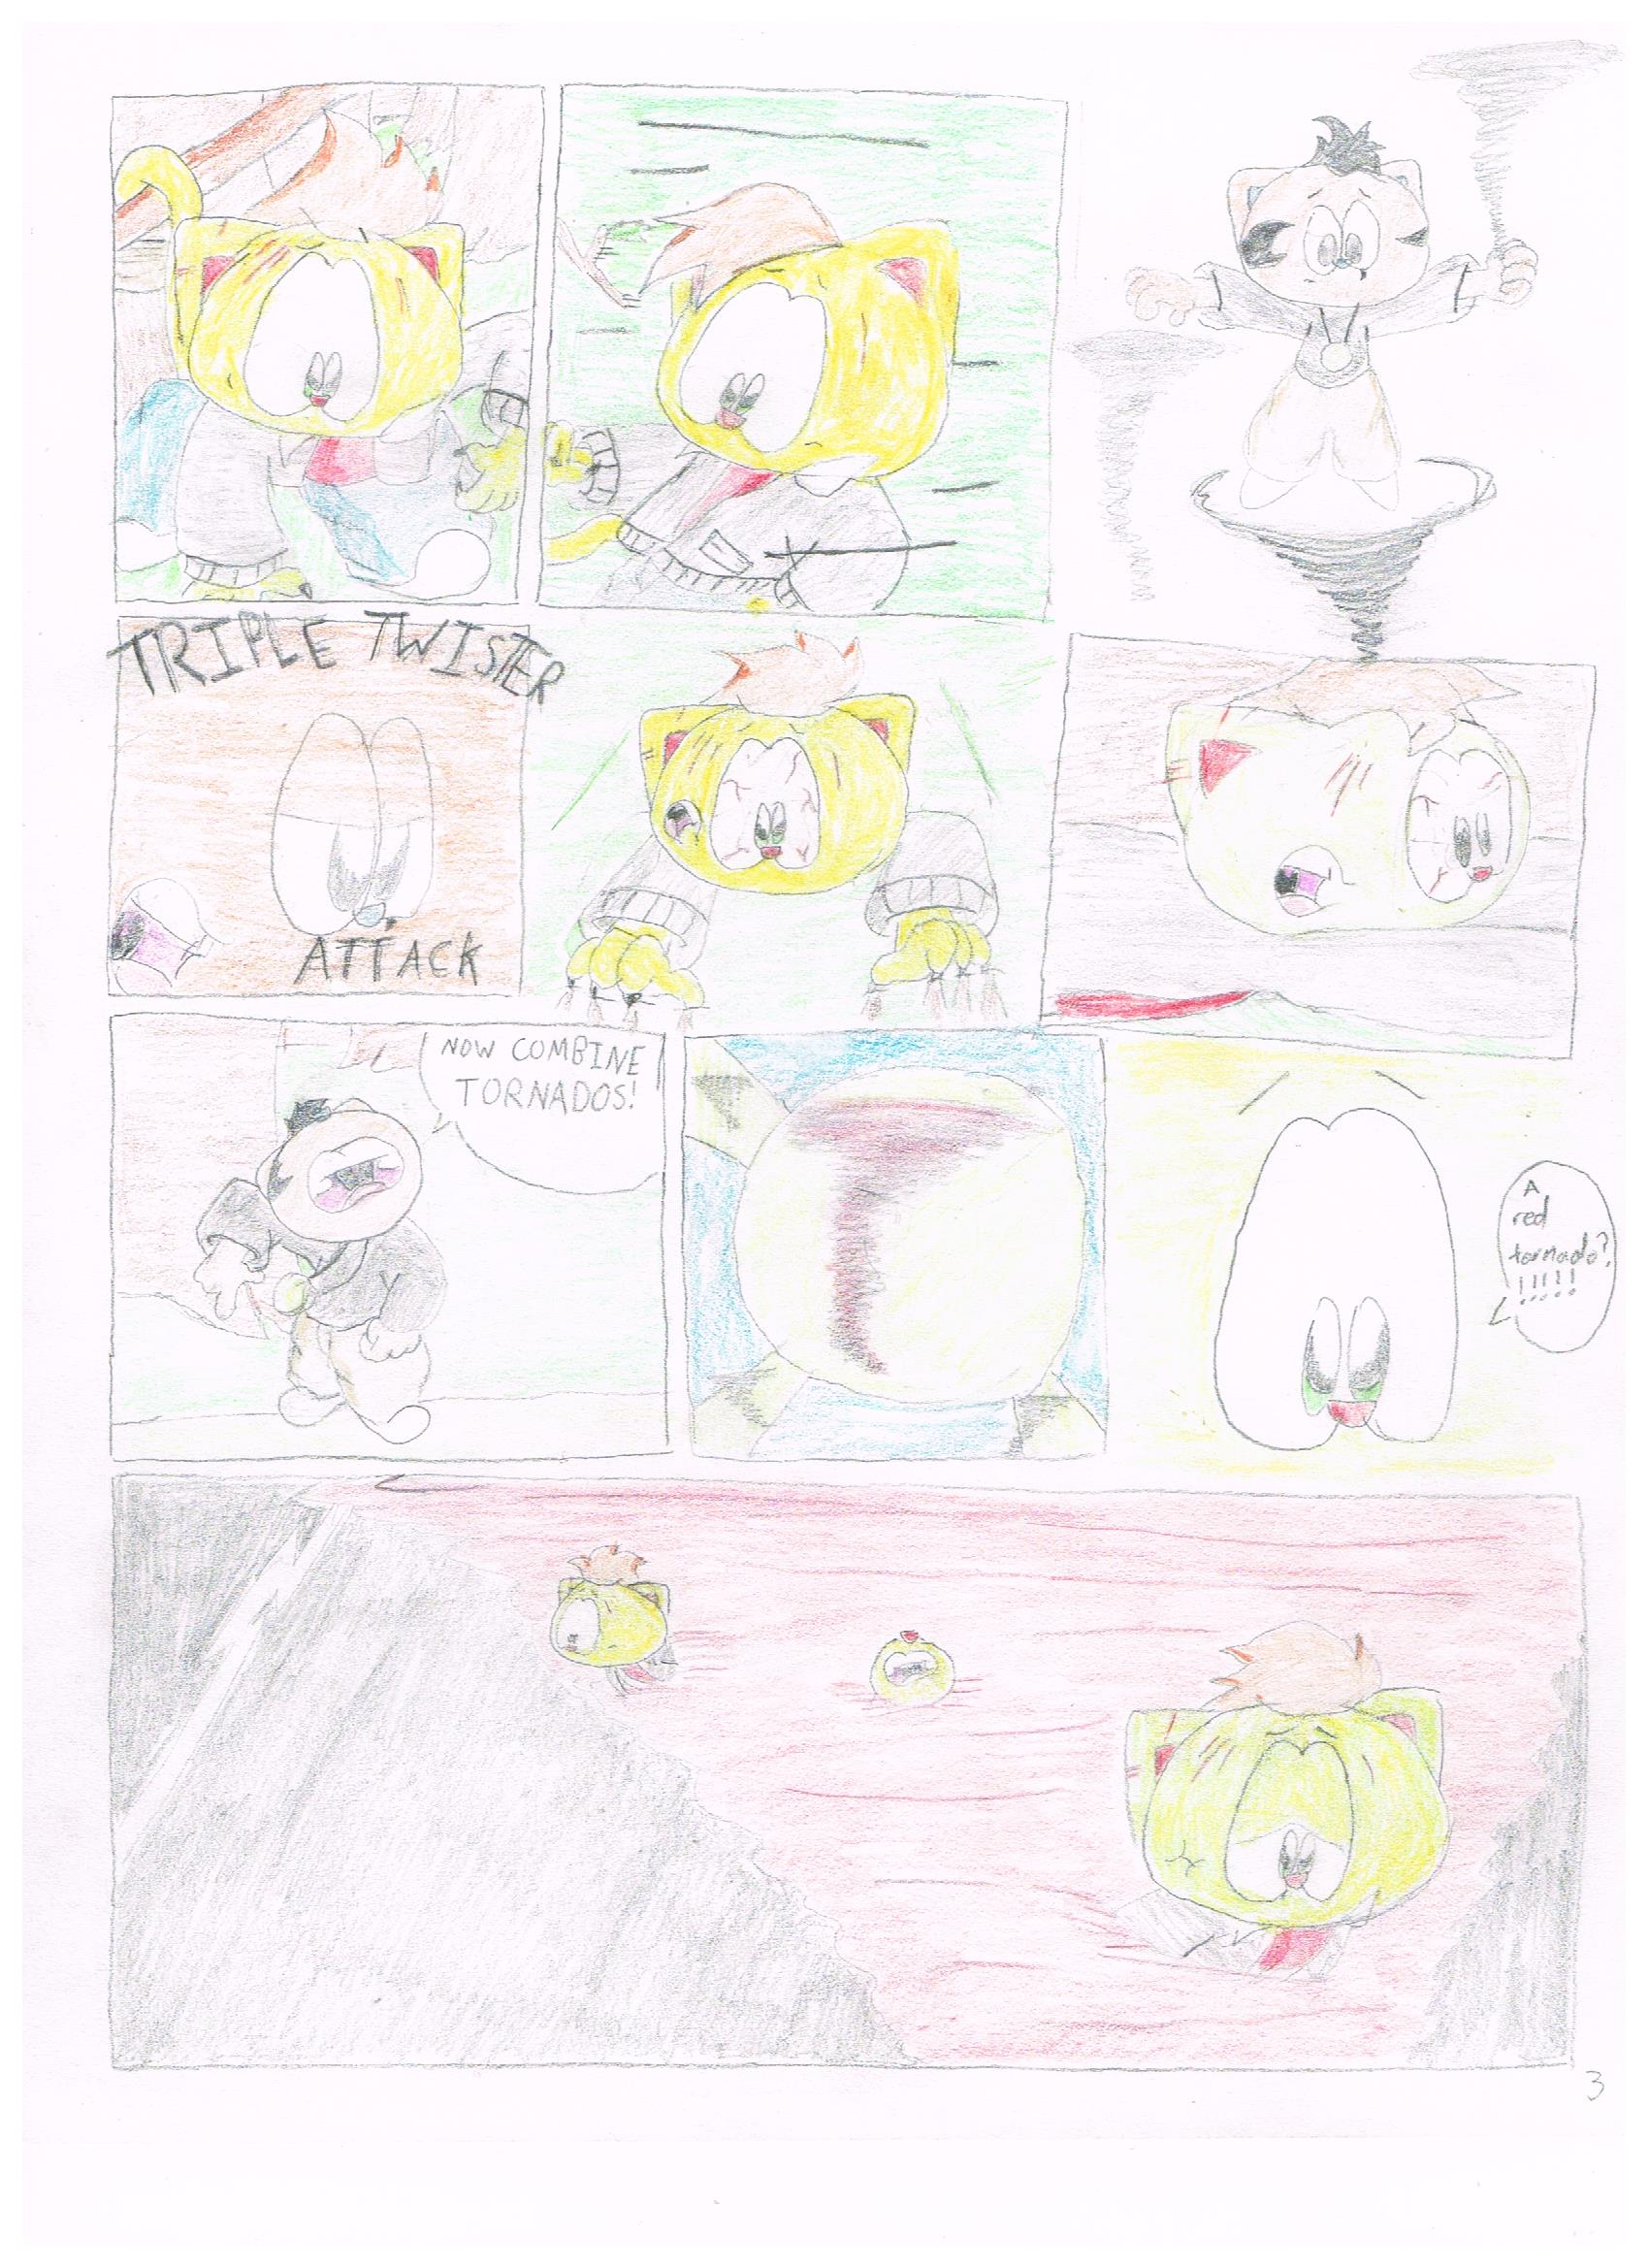 TRIPLE TWISTER
ATTACK
NOW COMBINE
TORNADOS!
A
red
tornado?
!!!!!
3